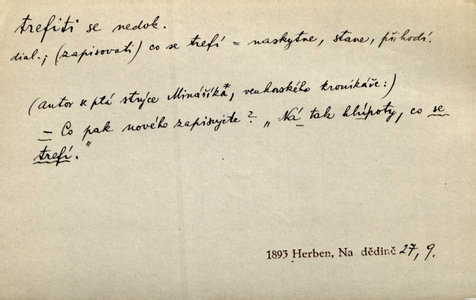 trefiti se nedok.
dial.; (zapisovati) co se trefí = naskytne, stane, přihodí.
(autor se ptá strýce Minaříka, venkovského kronikáře:)
— Co pak nového zapisujete? „Ná tak hlúpoty, co se
trefí."
1893 Herben, Na dědině 27, 9.